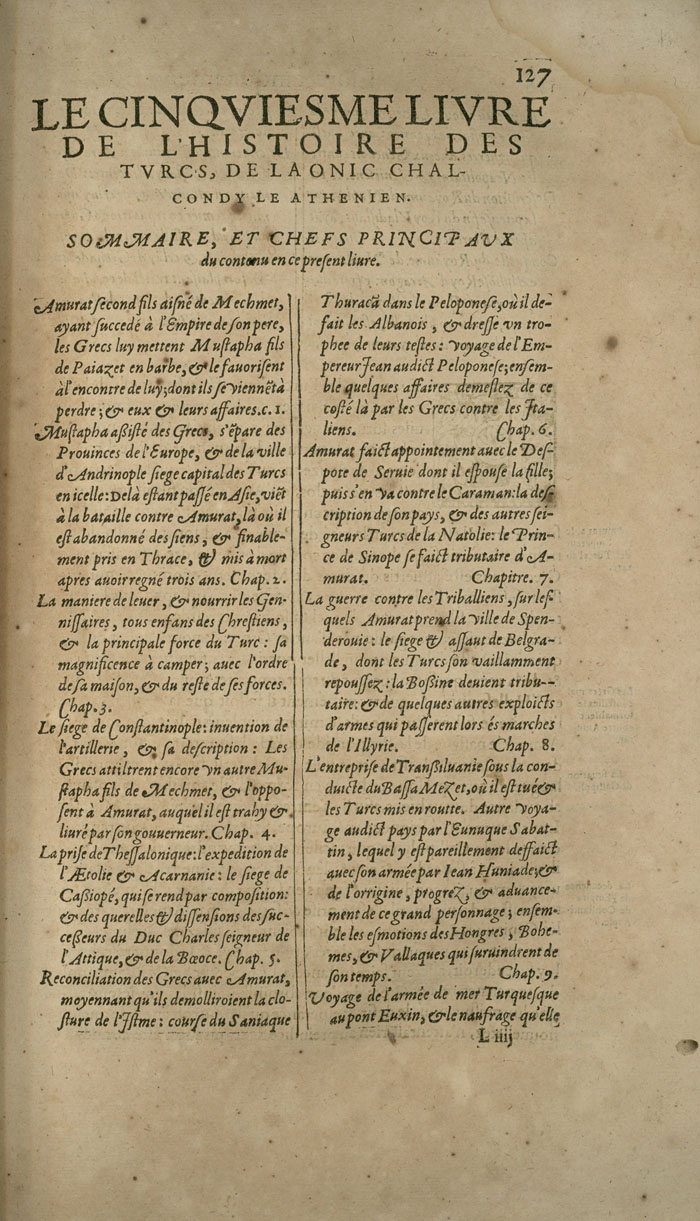 127
LE CINQVIESME LIVRE
DE L'HISTOIRE DES
TVRCS, DE LAONIC CHAL-
CONDYLE ATHENIEN.
SOMMAIRE, ET CHEFS PRINCIPAUX
du contenu en ce present liure.
Amurat second fils aisné de Mechmet,
ayant succedé à l'Empire de son pere,
les Grecs luy mettent Mustapha fils
de Paiazet en barbe, & le fauorisent
à l'encontre de luy; dont ils se viennēt à
perdre; & eux & leurs affaires. c. 1.
Mustapha assisté des Grecs, s'épare des
Prouinces de l'Europe, & de la ville
d'Andrinople siege capital des Turcs
en icelle: Delà estant passé en Asie, viēt
à la bataille contre Amurat, là où il
est abandonné des siens, & finable-
ment pris en Thrace, & mis à mort
apres auoir regné trois ans. Chap. 2.
La maniere de leuer, & nourrir les Gen-
nissaires, tous enfans des Chrestiens,
& la principale force du Turc: sa
magnificence à camper; auec l'ordre
de sa maison, & du reste de ses forces.
Chap. 3.
Le siege de Constantinople: inuention de
l'artillerie, & sa description: Les
Grecs attiltrent encore vn autre Mu-
stapha fils de Mechmet, & l'oppo-
sent à Amurat, auquel il est trahy &
liuré par son gouuerneur. Chap. 4.
La prise de Thessalonique: l'expedition de
l'Ætolie & Acarnanie: le siege de
Cassiopé, qui se rend par composition:
& des querelles & dissensions des suc-
cesseurs du Duc Charles seigneur de
l'Attique, & de la Bœoce. Chap. 5.
Reconciliation des Grecs auec Amurat,
moyennant qu'ils demolliroient la clo-
sture de l'Istme: course du Saniaque
Thuracā dans le Peloponese, où il de-
fait les Albanois, & dresse vn tro-
phee de leurs testes: voyage de l'Em-
pereur Jean audict Peloponese; ensem-
ble quelques affaires demeslez de ce
costé là par les Grecs contre les Ita-
liens. Chap. 6.
Amurat faict appointement auec le Des-
pote de Seruie dont il espouse la fille;
puis s'en va contre le Caraman: la des-
cription de son pays, & des autres sei-
gneurs Turcs de la Natolie: le Prin-
ce de Sinope se faict tributaire d'A-
murat. Chapitre. 7.
La guerre contre les Triballiens, sur les-
quels Amurat prend la ville de Spen-
derouie: le siege & assaut de Belgra-
de, dont les Turcs son vaillamment
repoussez: la Bossine deuient tribu-
taire: & de quelques autres exploicts
d'armes qui passerent lors és marches
de l'Illyrie. Chap. 8.
L'entreprise de Transiluanie sous la con-
duicte du Bassa Mezet, où il est tué &
les Turcs mis en routte. Autre voya-
ge audict pays par l'Eunuque Sabat-
tin, lequel y est pareillement deffaict
auec son armée par Iean Huniade; &
de l'orrigine, progrez, & aduance-
ment de ce grand personnage; ensem-
ble les esmotions des Hongres, Bohe-
mes, & Vallaques qui suruindrent de
son temps. Chap. 9.
Voyage de l'armée de mer Turquesque
au pont Euxin, & le naufrage qu'elle
L iiij